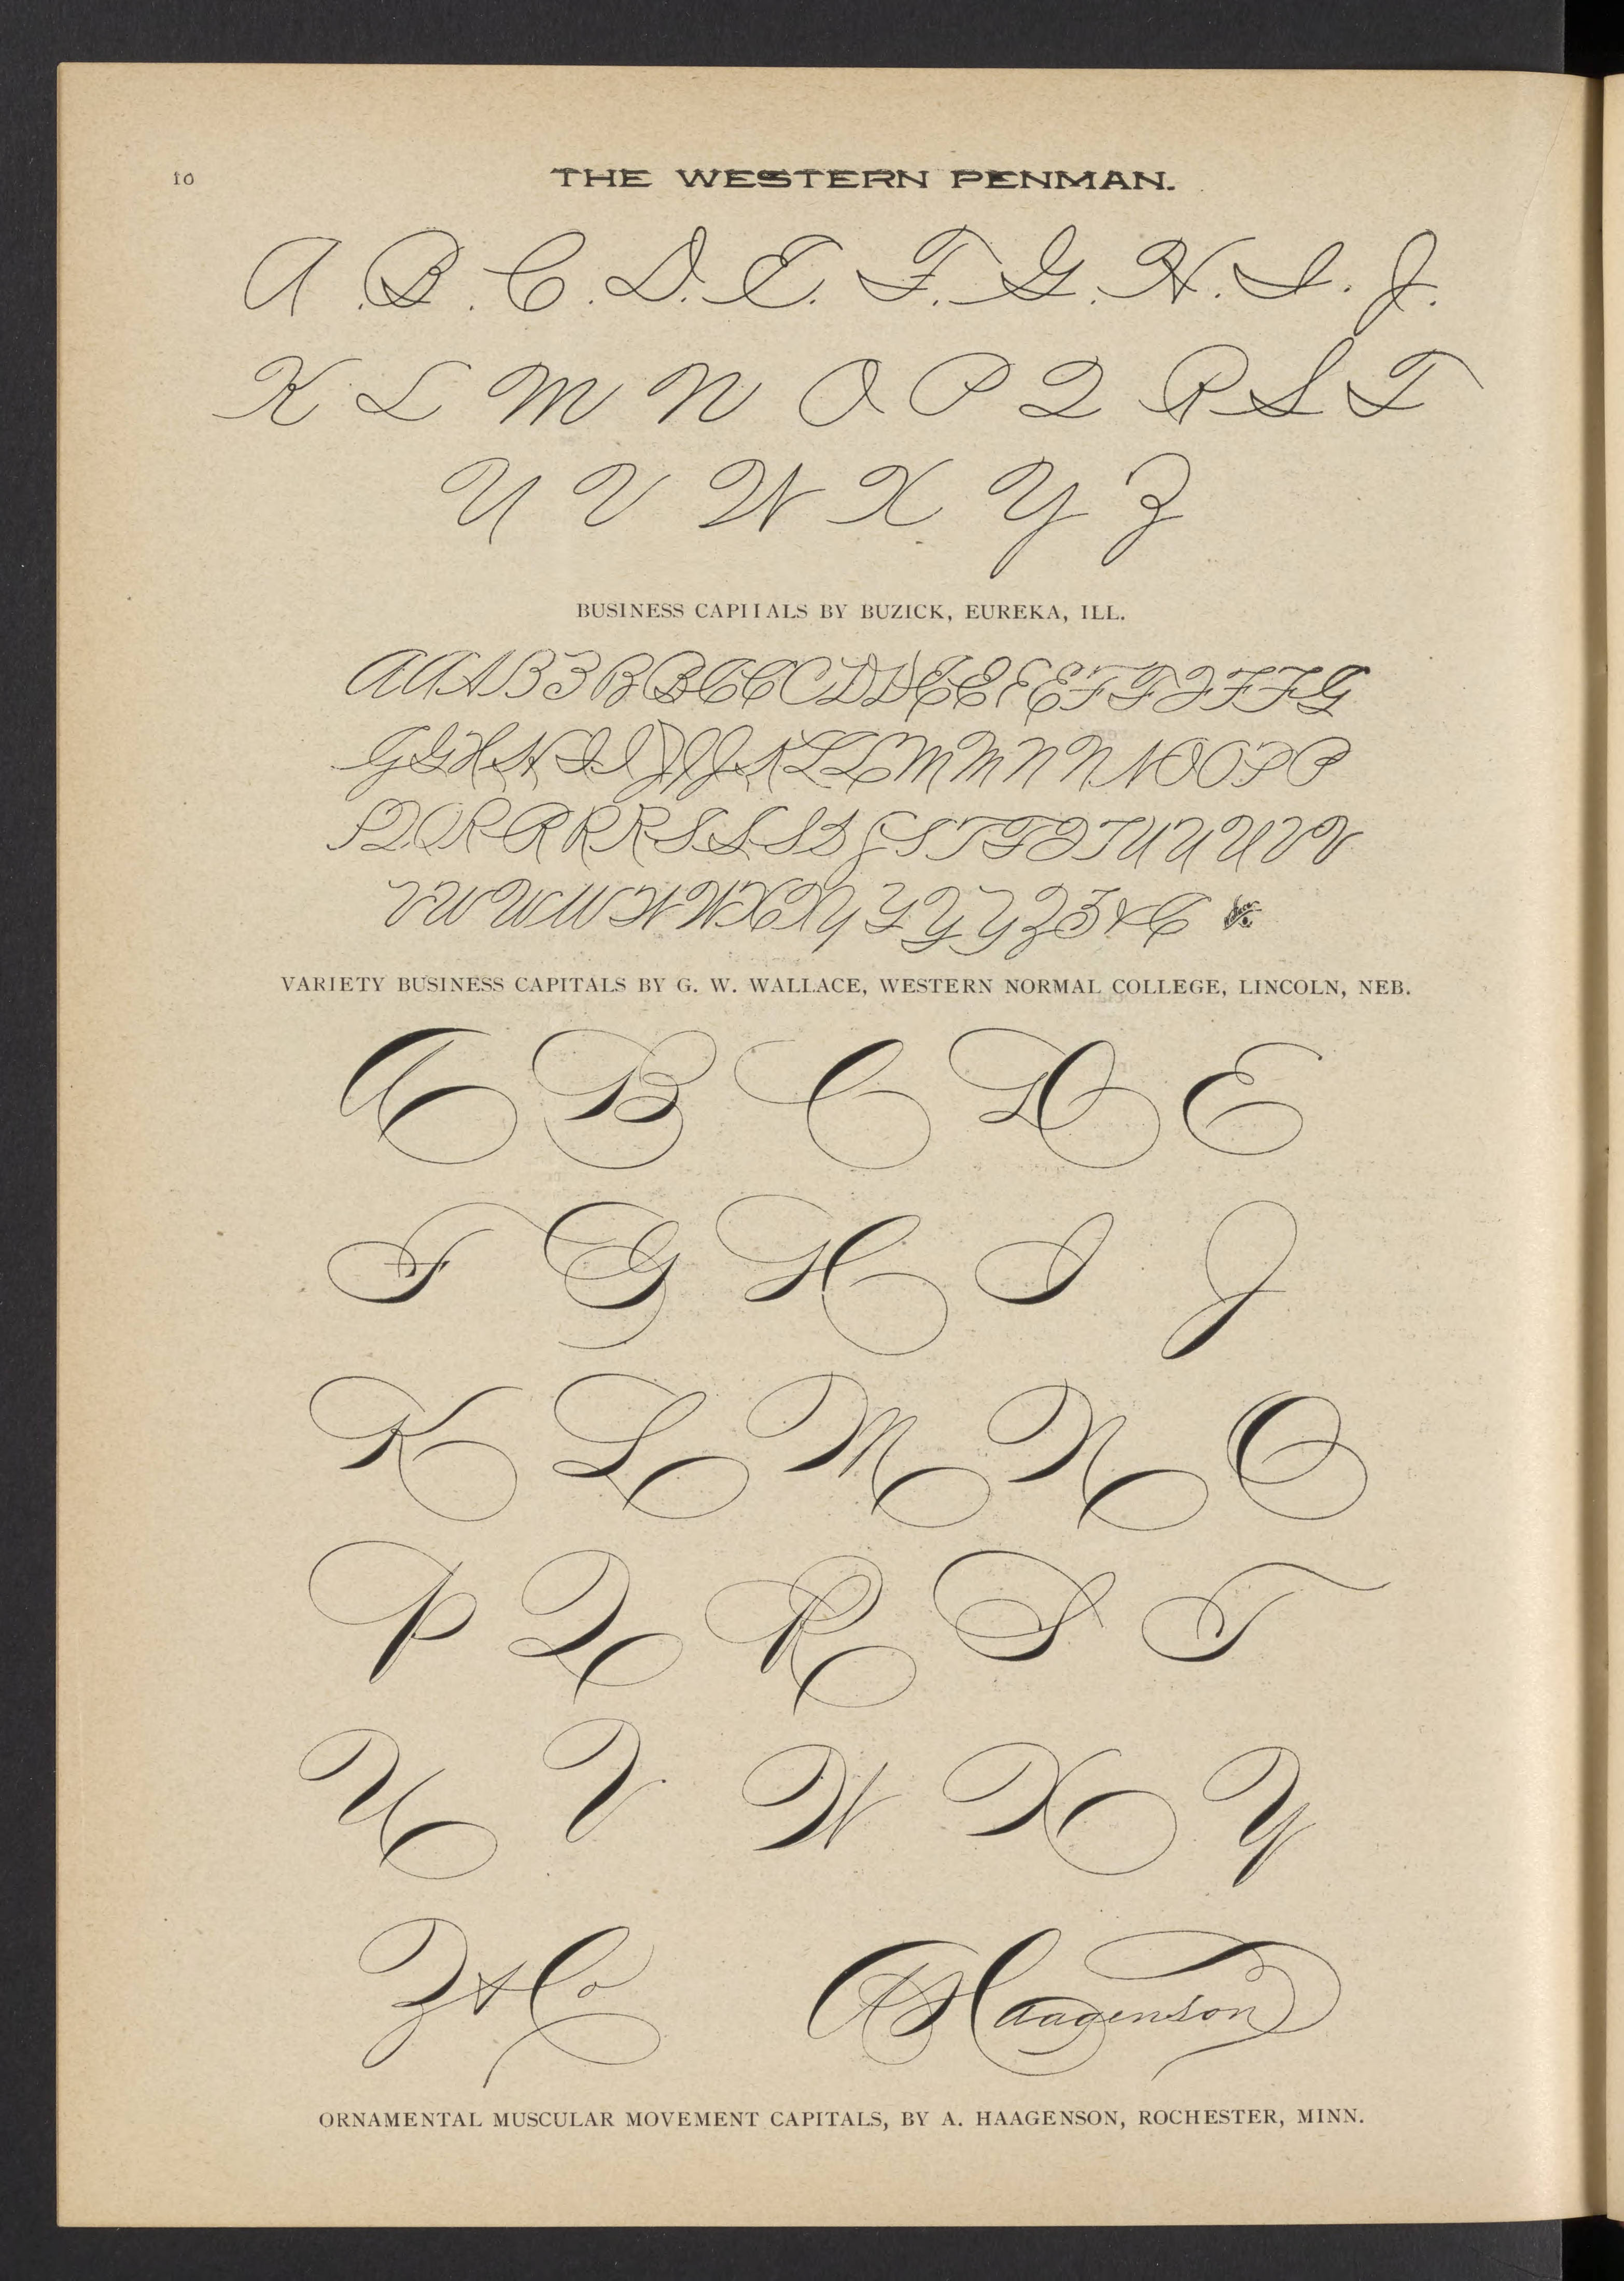 10
THE WESTERN PENMAN.
A. B. C. D. E. F. G. H. I. J.
K L M N O P Q R S T
U V W X Y Z
BUSINESS CAPITALS BY BUZICK, EUREKA, ILL.
A A A B B B B C C C D D E E E E F F F F F G
G G H H I I J J J K L L M M N N N O O P P
P Q Q R R R R S S S S S S T T T T U U U V V
V W W W W W X X Y Y Y Y Z Z & C
VARIETY BUSINESS CAPITALS BY G. W. WALLACE, WESTERN NORMAL COLLEGE, LINCOLN, NEB.
A B C D E
F G H I J
K L M N O
P Q R S T
U V W X Y
Z & Co
A Haagenson
ORNAMENTAL MUSCULAR MOVEMENT CAPITALS, BY A. HAAGENSON, ROCHESTER, MINN.